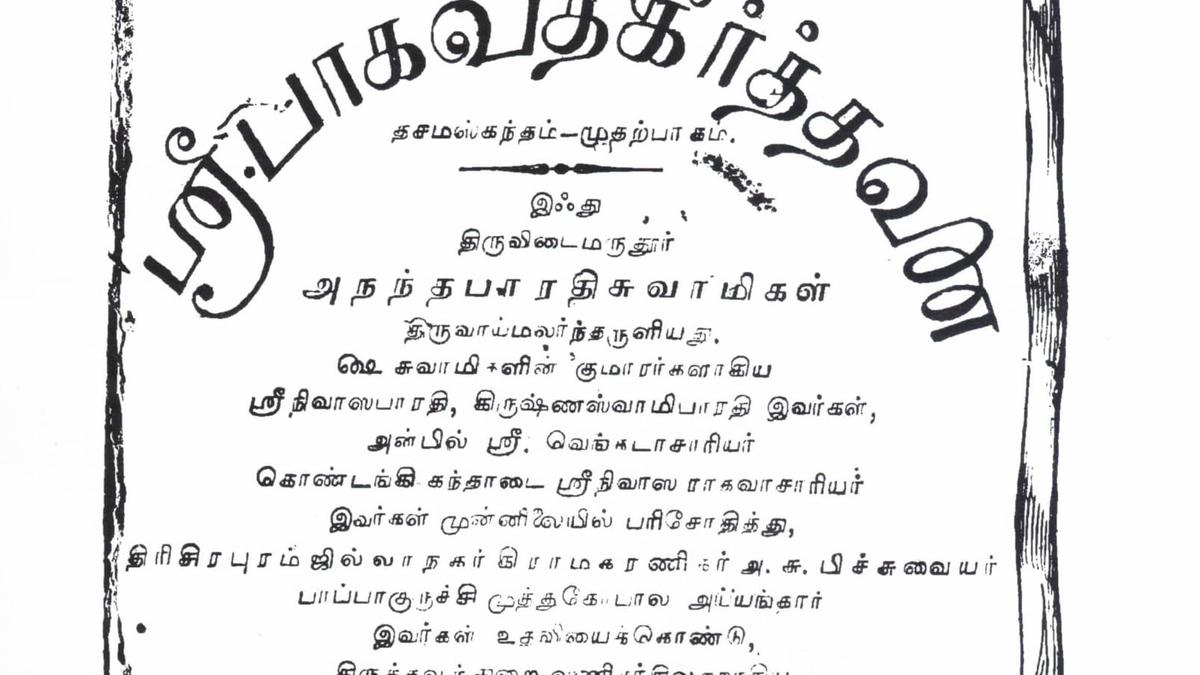 ஸ்ரீ.பாகவதகீர்த்தனை
தசமஸ்கந்தம்—முதற்பாகம்.
இஃது
திருவிடைமருதூர்
அநந்தபாரதிசுவாமிகள்
திருவாய்மலர்ந்தருளியது.
ஷை சுவாமிகளின் குமாரர்களாகிய
ஸ்ரீநிவாஸபாரதி, கிருஷ்ணஸ்வாமிபாரதி இவர்கள்,
அன்பில் ஸ்ரீ. வெங்கடாசாரியர்
கொண்டங்கி கந்தாடை ஸ்ரீநிவாஸ ராகவாசாரியர்
இவர்கள் முன்னிலையில் பரிசோதித்து,
திரிசிரபுரம்ஜில்லாநகர்கிராமகரணிகர் அ. சு. பிச்சுவையர்
பாப்பாகுருச்சி முத்துகோபால அய்யங்கார்
இவர்கள் உதவியைக்கொண்டு,